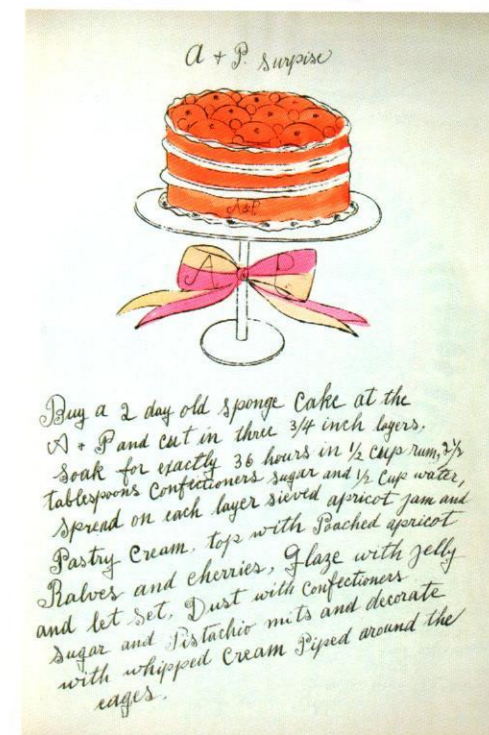 A + P. Surpise
A&P
A P
Buy a 2 day old sponge cake at the
A + P and cut in three 3/4 inch layers.
Soak for exactly 36 hours in 1/2 cup rum, 2 1/2
tablespoons Confectioners sugar and 1/2 Cup water,
spread on each layer sieved apricot jam and
Pastry Cream. top with Poached apricot
Halves and cherries, Glaze with jelly
and let set, Dust with Confectioners
sugar and Pistachio nuts and decorate
with whipped Cream Piped around the
edges.